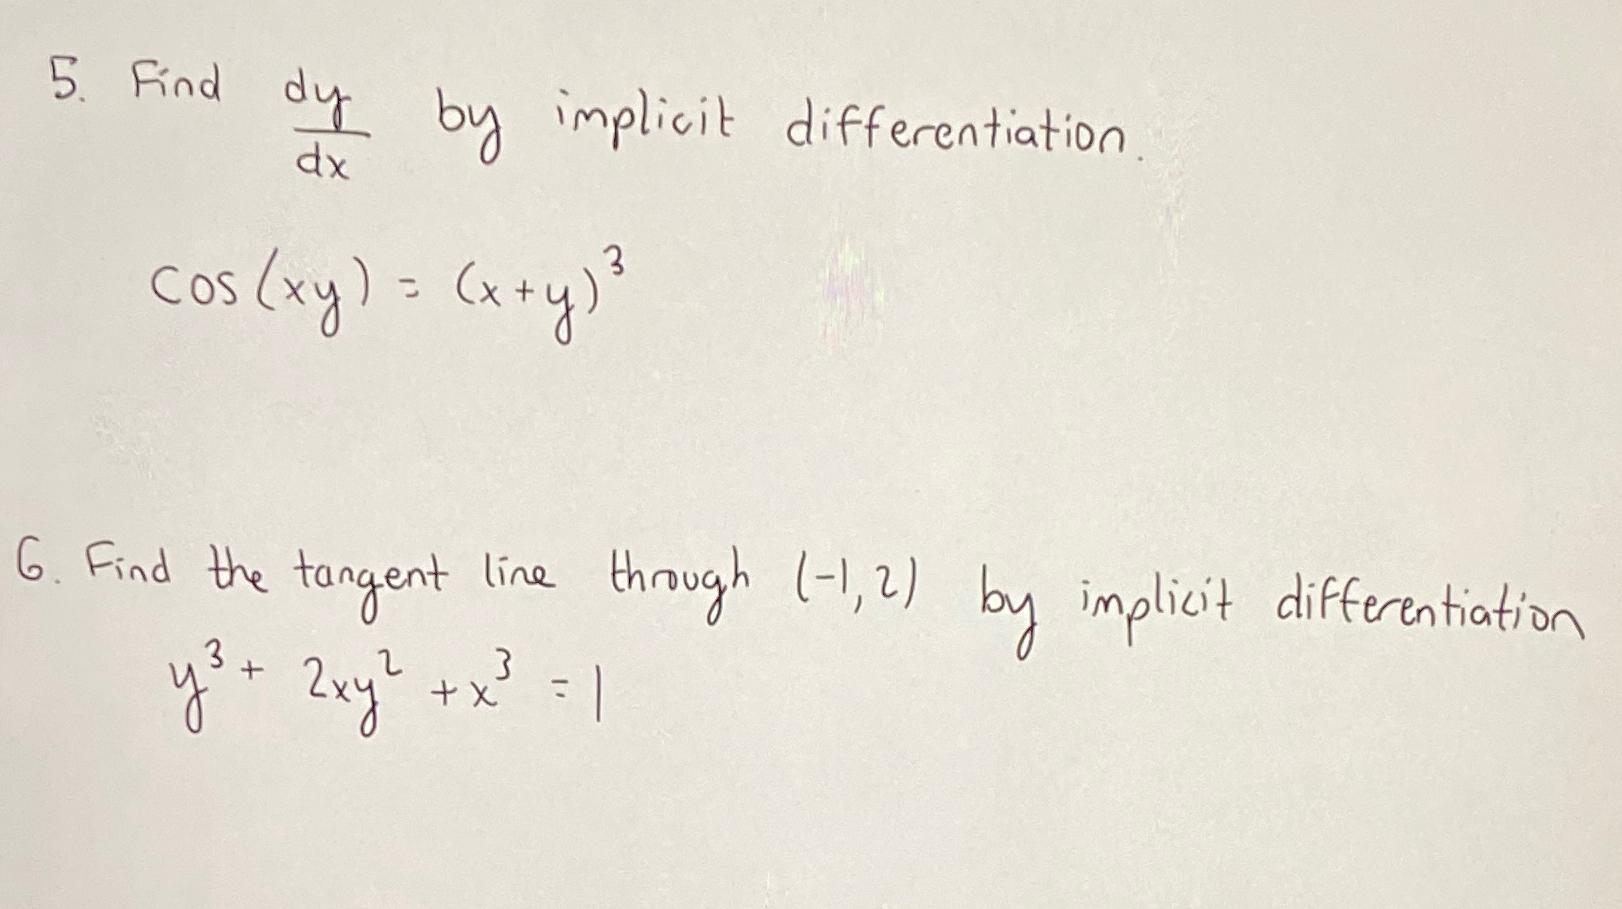 5. Find dy/dx by implicit differentiation.
cos(xy) = (x+y)³
6. Find the tangent line through (-1,2) by implicit differentiation
y³ + 2xy² + x³ = 1